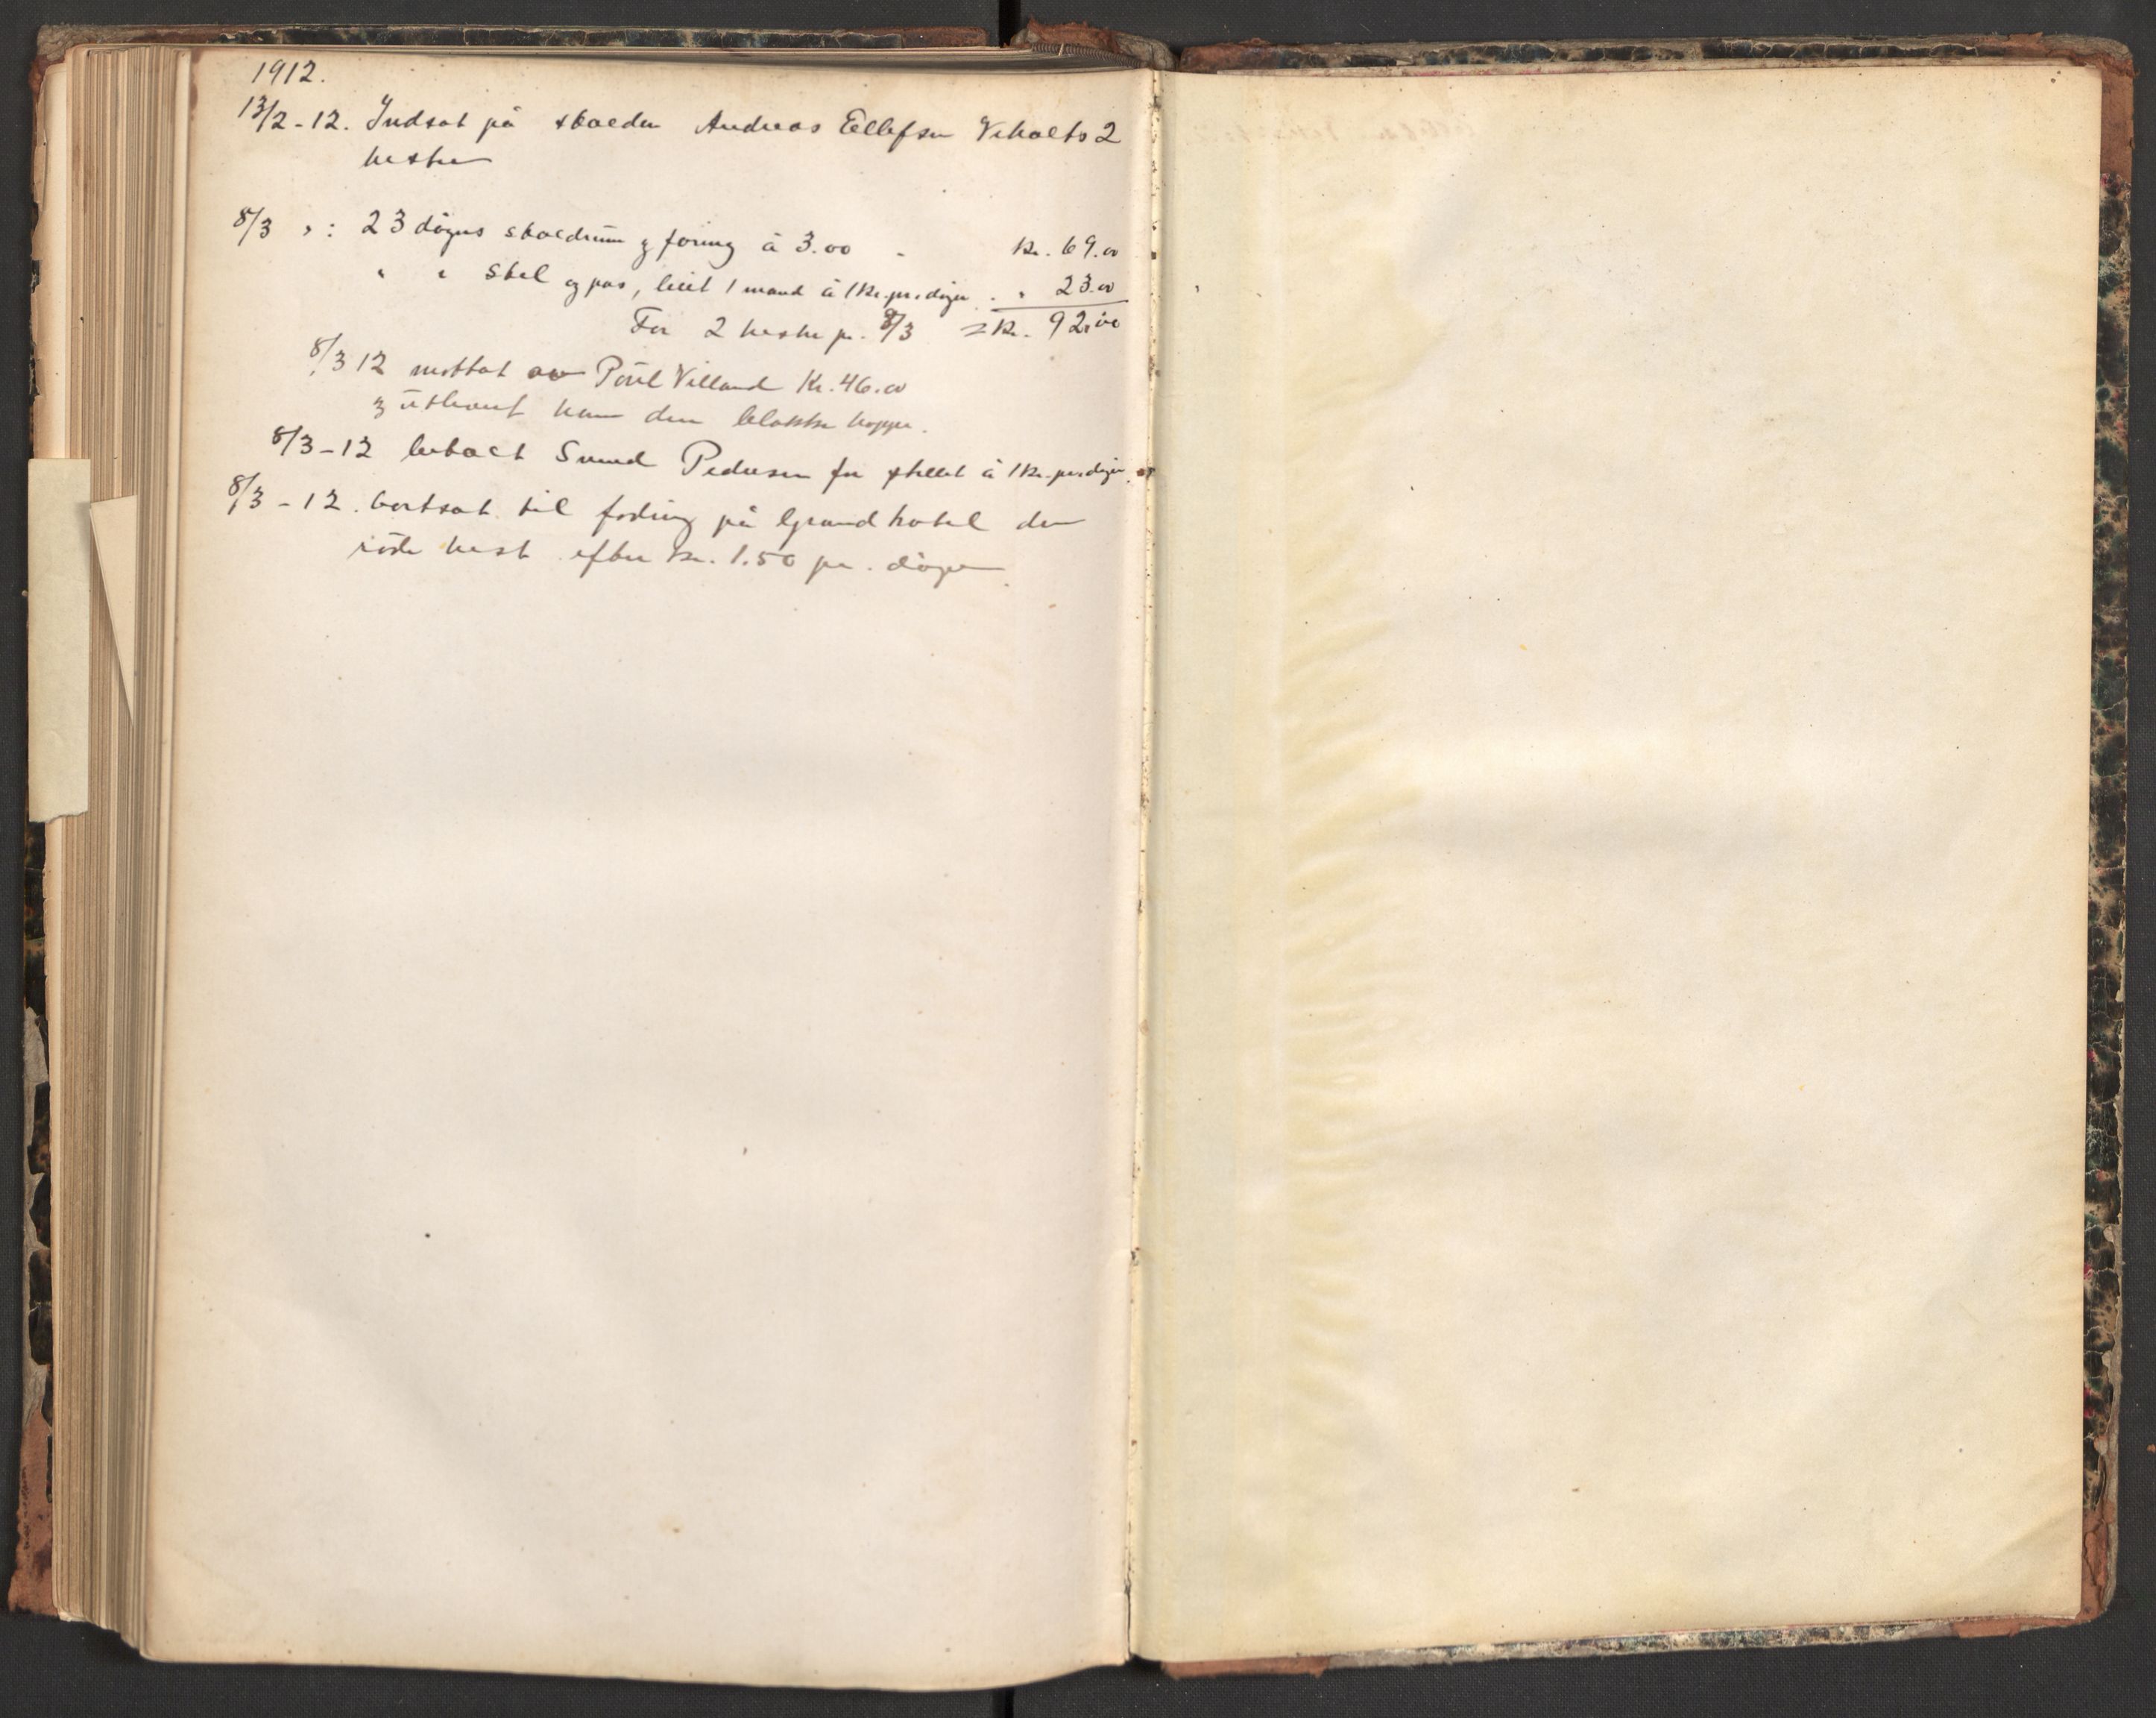 1912.
13/2-12. Indsat på stalden Andreas Ellefsen Veholts 2
hester
8/3 " : 23 døgns staldrum og foring á 3.00 - Kr. 69.00
" " Stel og pas, leiet 1 mand á 1 Kr. pr. døgn . " 23.00
For 2 heste pr. 8/3 = Kr. 92.00
8/3 12 mottat av Poul Villand Kr. 46.00
og utlevert ham den blakke hoppe.
8/3-12 betalt Svend Pedersen for stellet á 1 Kr. pr. døgn.
8/3-12. bortsat til foding på Grand hotel den
røde hest efter Kr. 1.50 pr. døgn.